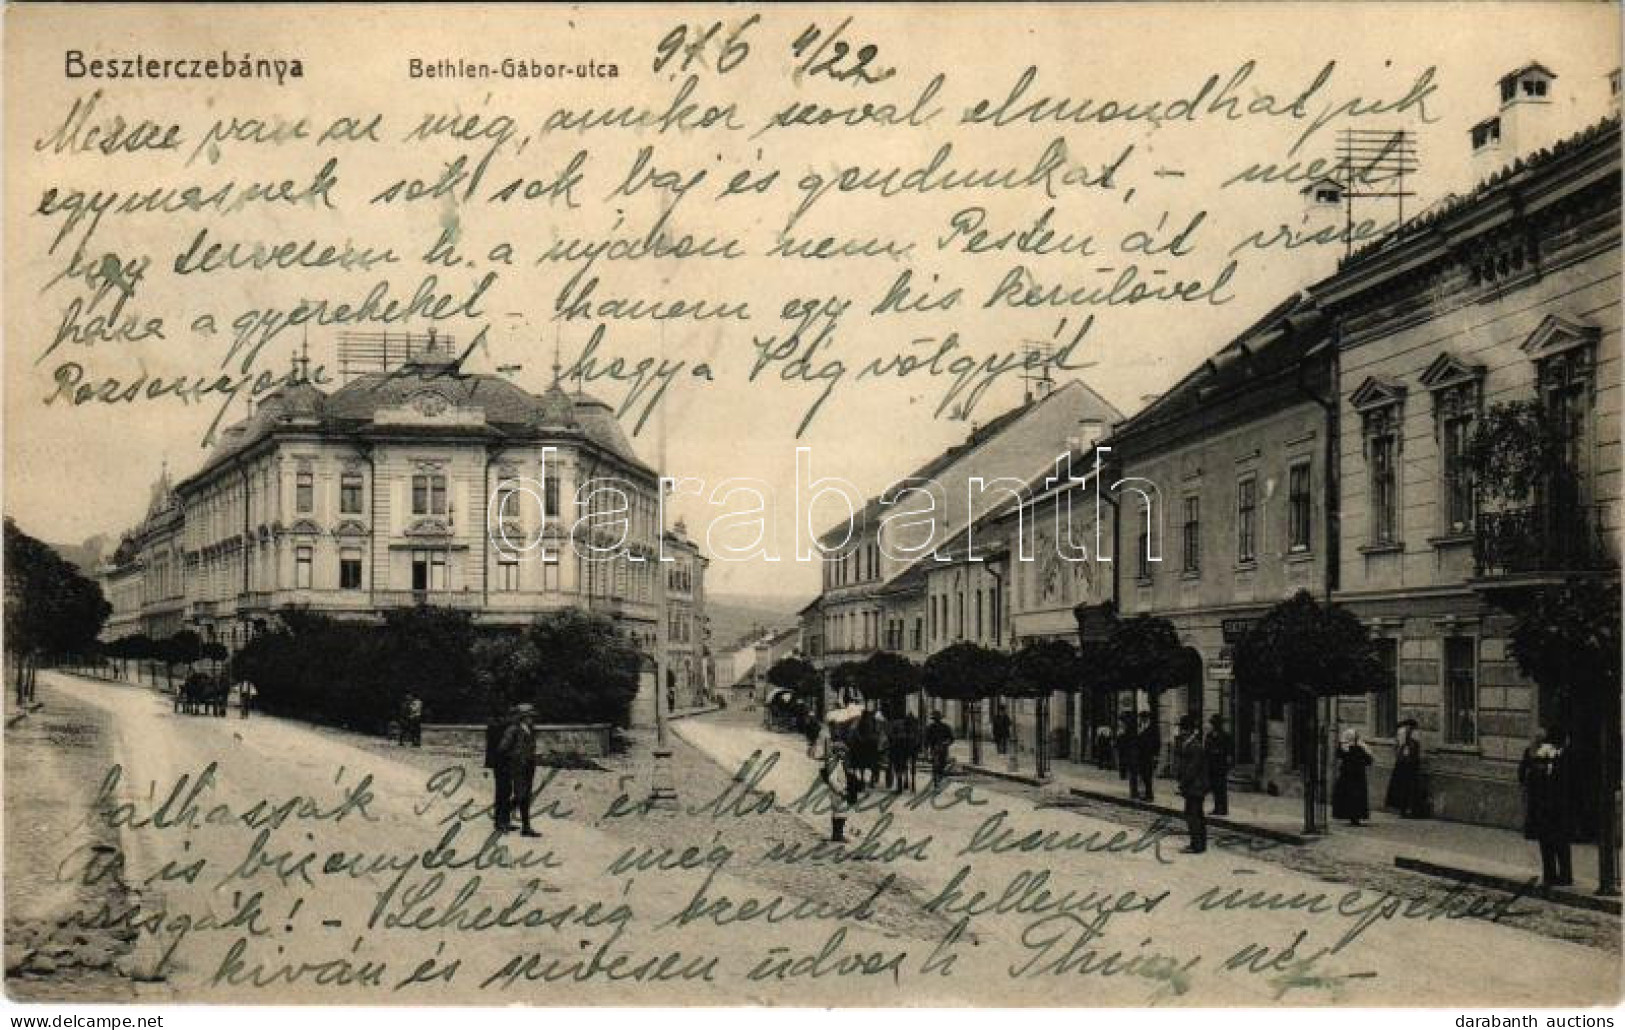 Beszterczebánya Bethlen-Gábor-utca 916 4/22
Messze van az még, amikor szóval elmondhatjuk
egymásnak sok sok baj és gondunkat, – mert
úgy tervezem h. a nyáron nem Pesten át viszem
haza a gyerekeket – hanem egy kis kerülővel
Pozsonyon át, – hogy a Vág völgyét
darabanth
láthassák Pubi és Mokuska
is bizonytalan még mikor lesznek a
vizsgák! – Lehetőség szerint kellemes ünnepeket
kíván és szívesen üdvözli
darabanth auctions
https://www.darabanth.com